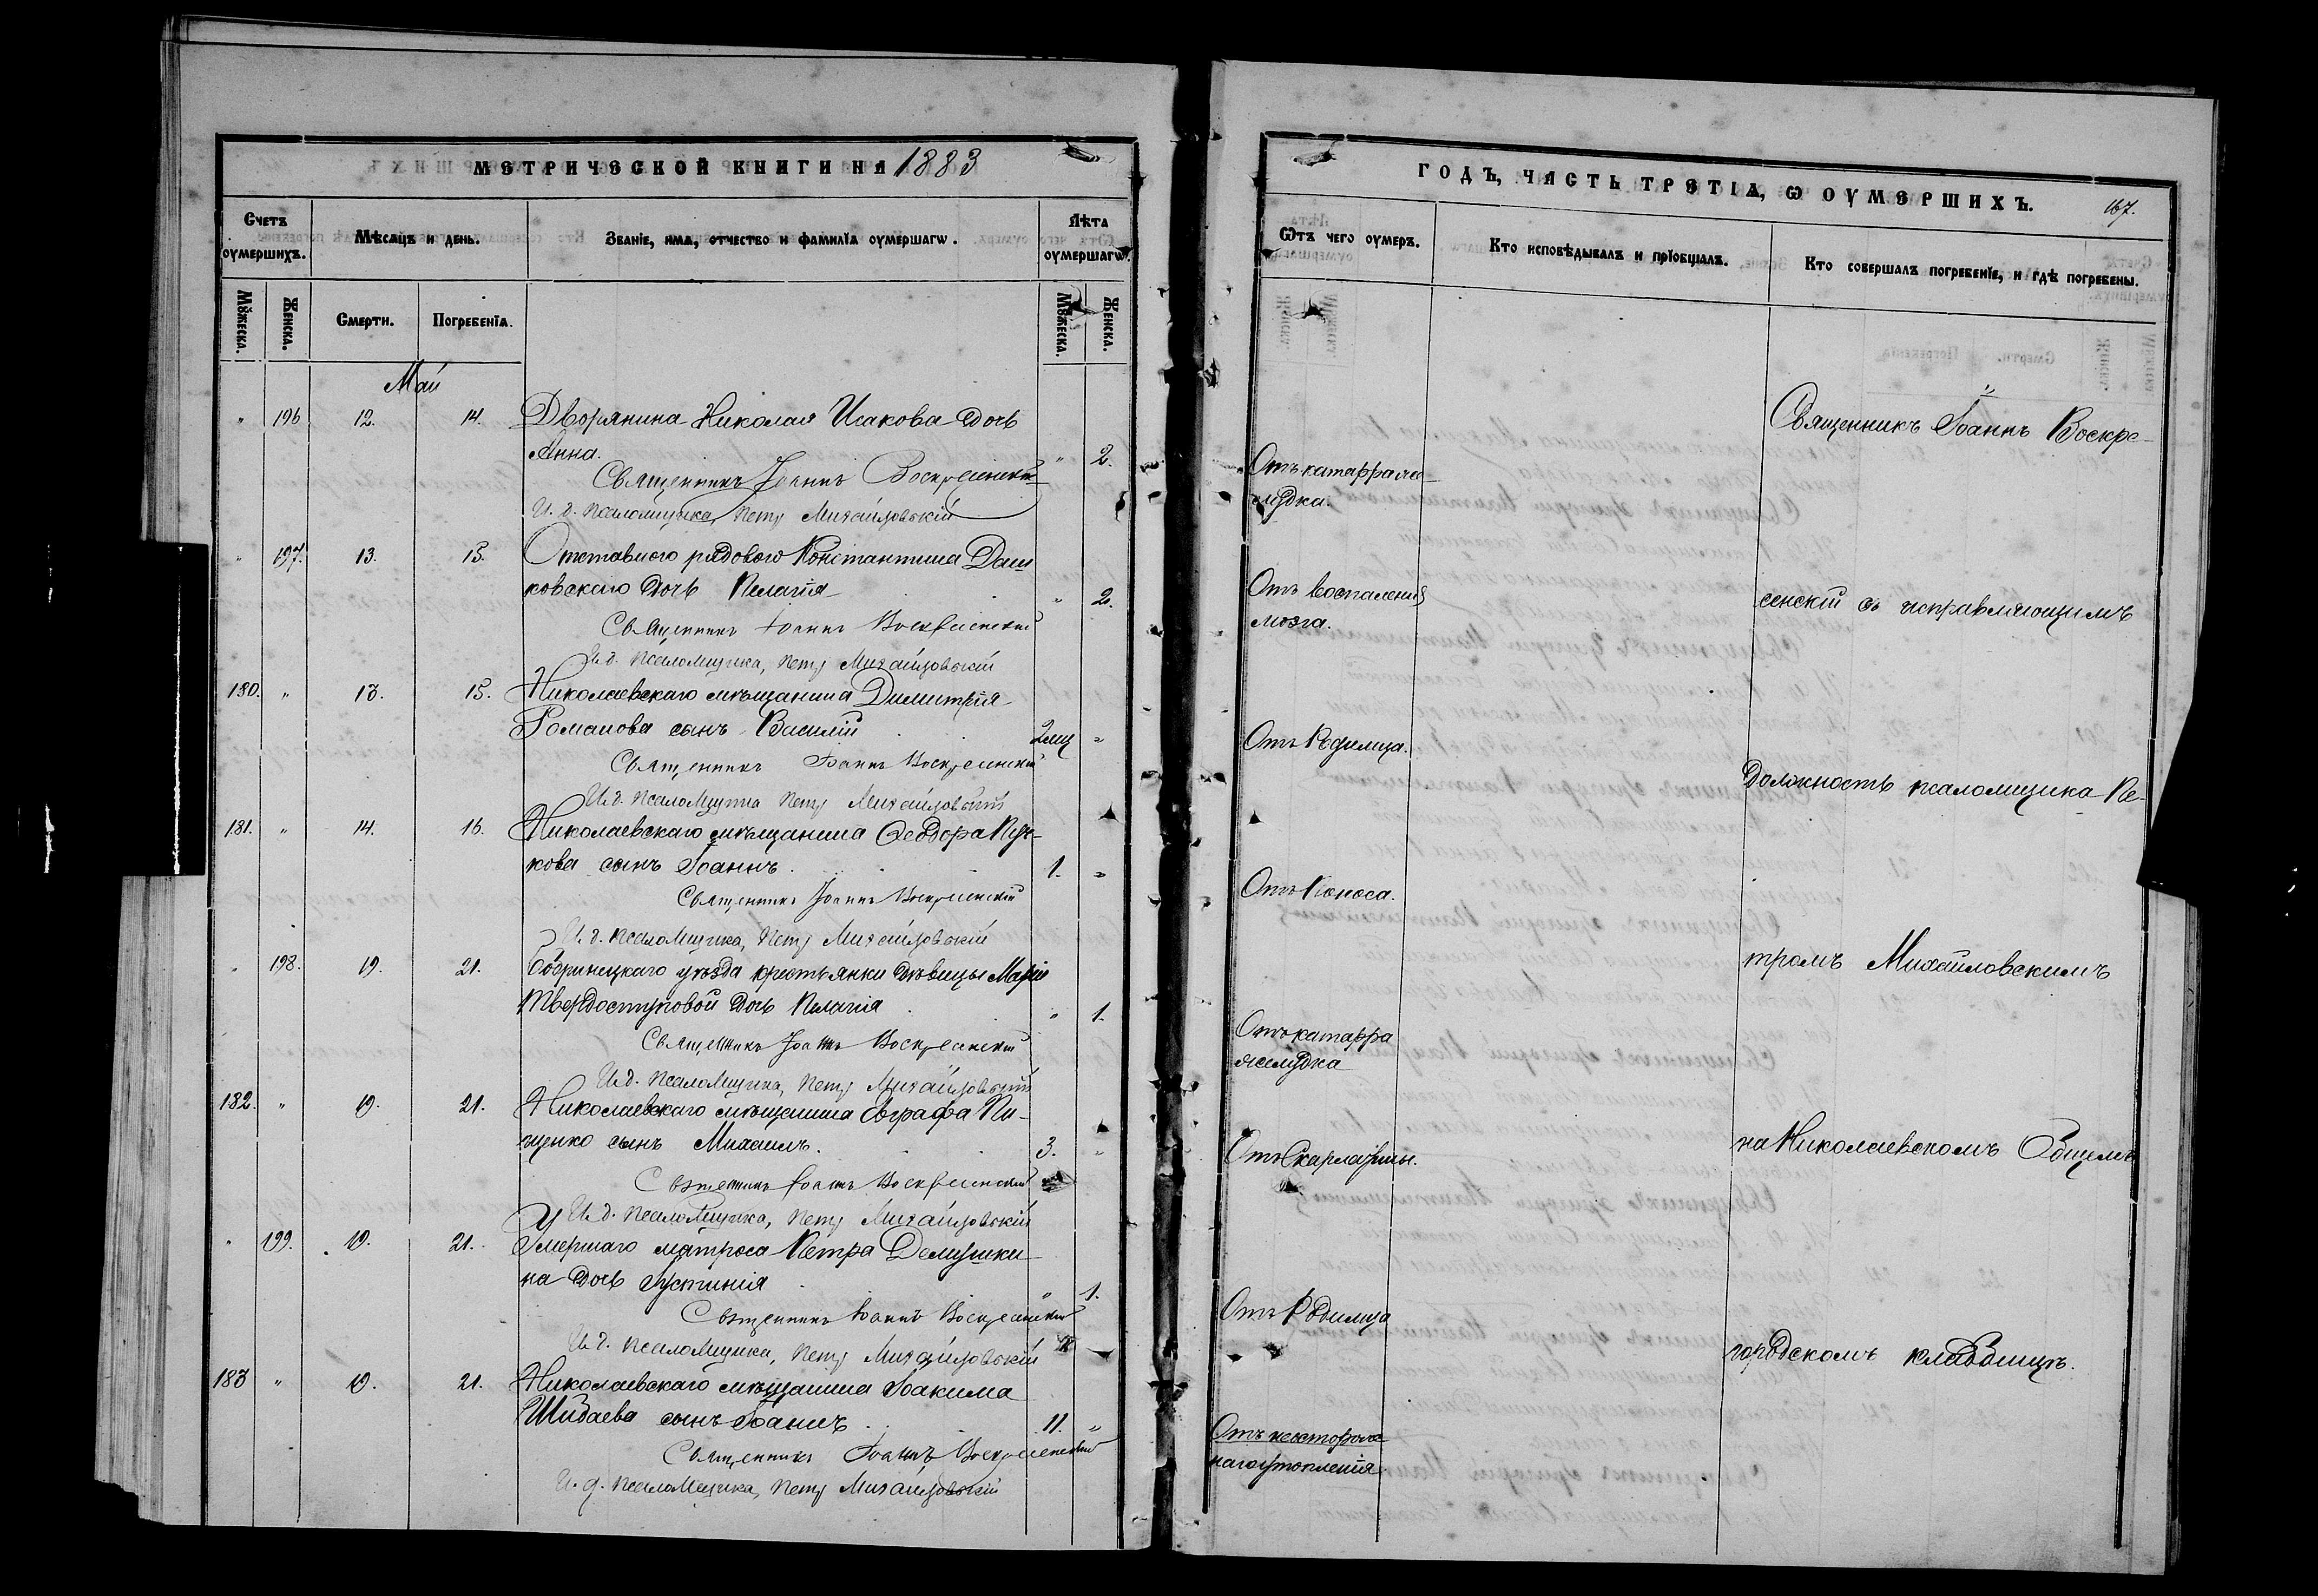 МЕТРИЧЕСКОЙ КНИГИ НА 1883
Счетъ оумершихъ.
Мѣсяцъ и день.
Званїе, имѧ, отчество и фамилїа оумершагѡ.
Лѣта оумершагѡ.
Мꙋжеска.
Женска.
Смерти.
Погребенїѧ.
Мꙋжеска.
Женска.
Май
" 196 12. 14. Дворянина Николая Исакова дочь
Анна. " 2.
Священникъ Іоаннъ Воскресенскій
И. д. псаломщика, Петръ Михайловскій
" 197. 13. 15. Отставного рядового Константина Даш
ковскаго дочь Пелагія " 2.
Священникъ Іоаннъ Воскресенскій
И. д. псаломщика, Петръ Михайловскій
180. " 13. 15. Николаевскаго мѣщанина Димитрія
Романова сынъ Василій 2 мц "
Священникъ Іоаннъ Воскресенскій
И. д. псаломщика Петръ Михайловскій
181. " 14. 16. Николаевскаго мѣщанина Ѳеодора
кова сынъ Іоаннъ. 1. "
Священникъ Іоаннъ Воскресенскій
И. д. псаломщика, Петръ Михайловскій
" 198. 19. 21. уѣзда крестьянки дѣвицы Маріи
Твердоступовой дочь Пелагія " 1.
Священникъ Іоаннъ Воскресенскій
И. д. псаломщика, Петръ Михайловскій
182. " 19. 21. Николаевскаго мѣщанина Евграфа Пи-
щенко сынъ Михаилъ. 3. "
Священникъ Іоаннъ Воскресенскій
И. д. псаломщика, Петръ Михайловскій
" 199. 19. 21. Умершаго матроса Петра Демушки-
на дочь Іустинія " 1.
Священникъ Іоаннъ Воскресенскій
И. д. псаломщика, Петръ Михайловскій
183 " 19. 21. Николаевскаго мѣщанина Іоакима
Шибаева сынъ Іоаннъ 11. "
Священникъ Іоаннъ Воскресенскій
И. д. псаломщика, Петръ Михайловскій
ГОДЪ, ЧАСТЬ ТРЕТІѦ, Ѡ ОУМЕРШИХЪ. 167.
Ѿтъ чего оумеръ.
Кто исповѣдывалъ и прїобщалъ.
Кто совершалъ погребенїе, и гдѣ погребены.
Священникъ Іоаннъ Воскре-
Отъ катарра же-
лудка.
Отъ воспаленія
мозга.
сенскій съ исправляющимъ
Отъ Родимца.
должность псаломщика Пе-
Отъ Поноса.
тромъ Михайловскимъ
Отъ катарра
желудка
на Николаевскомъ Общемъ
Отъ Скарлатины.
Отъ Родимца
городскомъ кладбищѣ.
Отъ неосторож-
наго утопленія